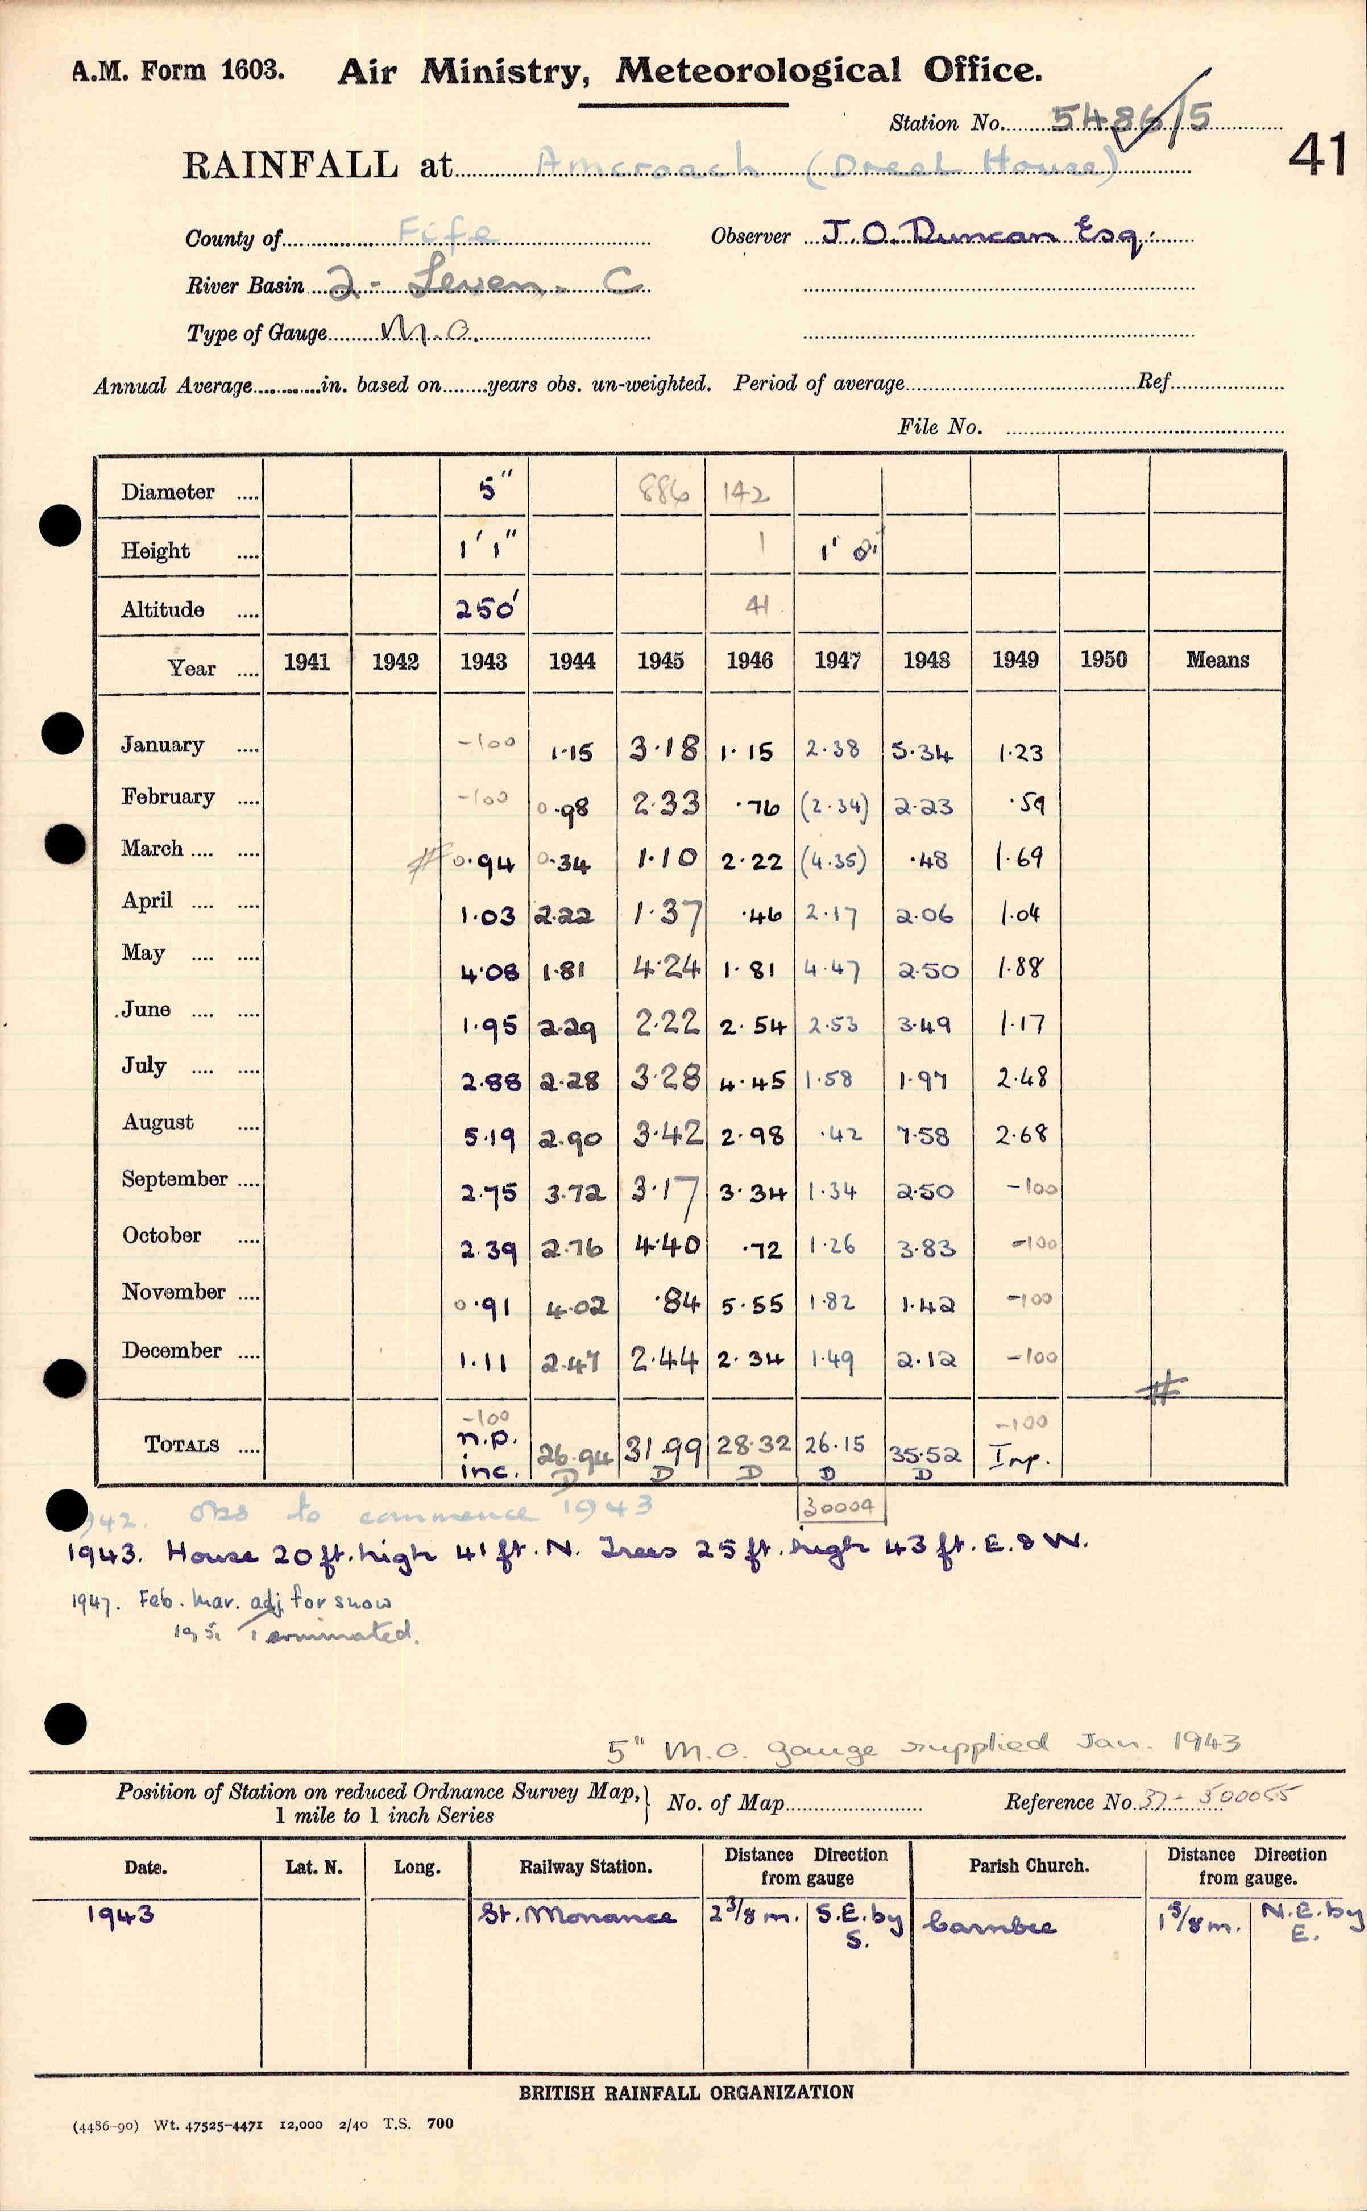 A.M. Form 1603. Air Ministry, Meteorological Office.
Station No. 5486/5
41
RAINFALL at Arncroach (Dreel House)
County of Fife Observer J. O. Duncan Esq.
River Basin 2 - Leven - C
Type of Gauge M.O.
Annual Average in. based on years obs. un-weighted. Period of average Ref.
File No.
Diameter 5" 886 142
Height 1' 1" 1 1' 0"
Altitude 250' 41
Year 1941 1942 1943 1944 1945 1946 1947 1948 1949 1950 Means
January -100 1.15 3.18 1.15 2.38 5.34 1.23
February -100 0.98 2.33 .76 (2.34) 2.23 .59
March # 0.94 0.34 1.10 2.22 (4.35) .48 1.69
April 1.03 2.22 1.37 .46 2.17 2.06 1.04
May 4.08 1.81 4.24 1.81 4.47 2.50 1.88
June 1.95 2.29 2.22 2.54 2.53 3.49 1.17
July 2.88 2.28 3.28 4.45 1.58 1.97 2.48
August 5.19 2.90 3.42 2.98 .42 7.58 2.68
September 2.75 3.72 3.17 3.34 1.34 2.50 -100
October 2.39 2.76 4.40 .72 1.26 3.83 -100
November 0.91 4.02 .84 5.55 1.82 1.42 -100
December 1.11 2.47 2.44 2.34 1.49 2.12 -100
#
-100 -100
TOTALS n.p. 26.94 31.99 28.32 26.15 35.52 Inp.
inc. D D D D D
1942. Obs to commence 1943 30004
1943. House 20 ft. high 41 ft. N. Trees 25 ft. high 43 ft. E. & W.
1947. Feb. Mar. adj for snow
1951 Terminated.
5" M.O. gauge supplied Jan. 1943
Position of Station on reduced Ordnance Survey Map, 1 mile to 1 inch Series } No. of Map Reference No. 37- 500055
Date. Lat. N. Long. Railway Station. Distance Direction from gauge Parish Church. Distance Direction from gauge.
1943 St. Monance 2 3/8 m. S.E. by S. Carnbee 1 5/8 m. N.E. by E.
BRITISH RAINFALL ORGANIZATION
(4486-90) Wt. 47525-4471 12,000 2/40 T.S. 700